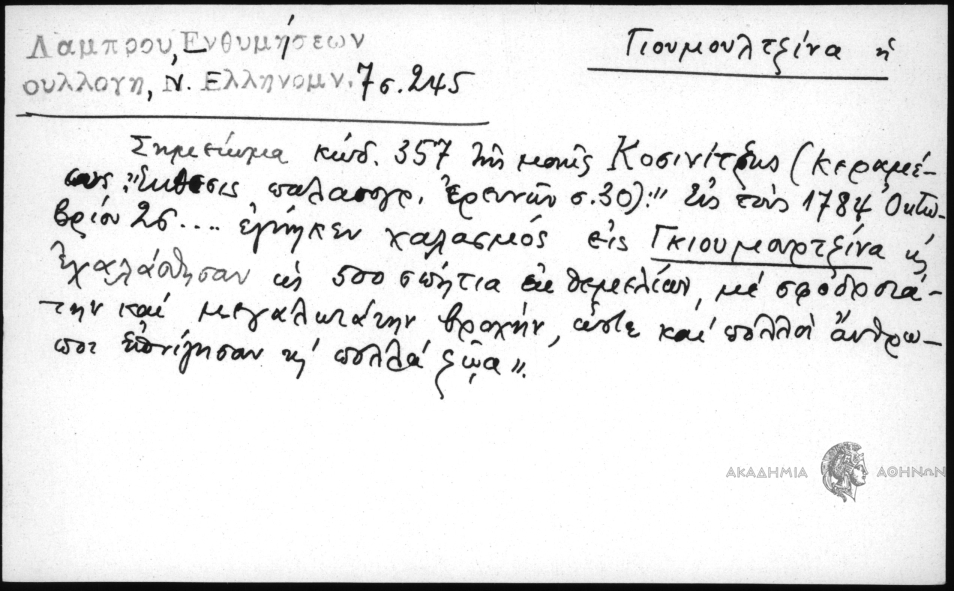 Λαμπρου, Ενθυμήσεων
συλλογη, Ν. Ελληνομν. 7 σ. 245
Γιουμουλτζίνα ἡ
Σημείωμα κώδ. 357 τῆς μονῆς Κοσινίτζης (Κεραμέ-
ως, Ἔκθεσις παλαιογρ. ἐρευνῶν σ. 30): "Εἰς τοὺς 1784 Ὀκτω-
βρίου 25.... ἐγίνηκεν χαλασμός εἰς Γκιουμουρτζίνα κ̓
ἐχαλάσθησαν ὡς 500 σπήτια ἐκ θεμελίων, μέ σφοδροτά-
την καί μεγαλωτάτην βροχήν, ὥστε καί πολλοί ἄνθρω-
ποι ἐπνίγησαν κ̓ πολλά ζῷα".
ΑΚΑΔΗΜΙΑ ΑΘΗΝΩΝ